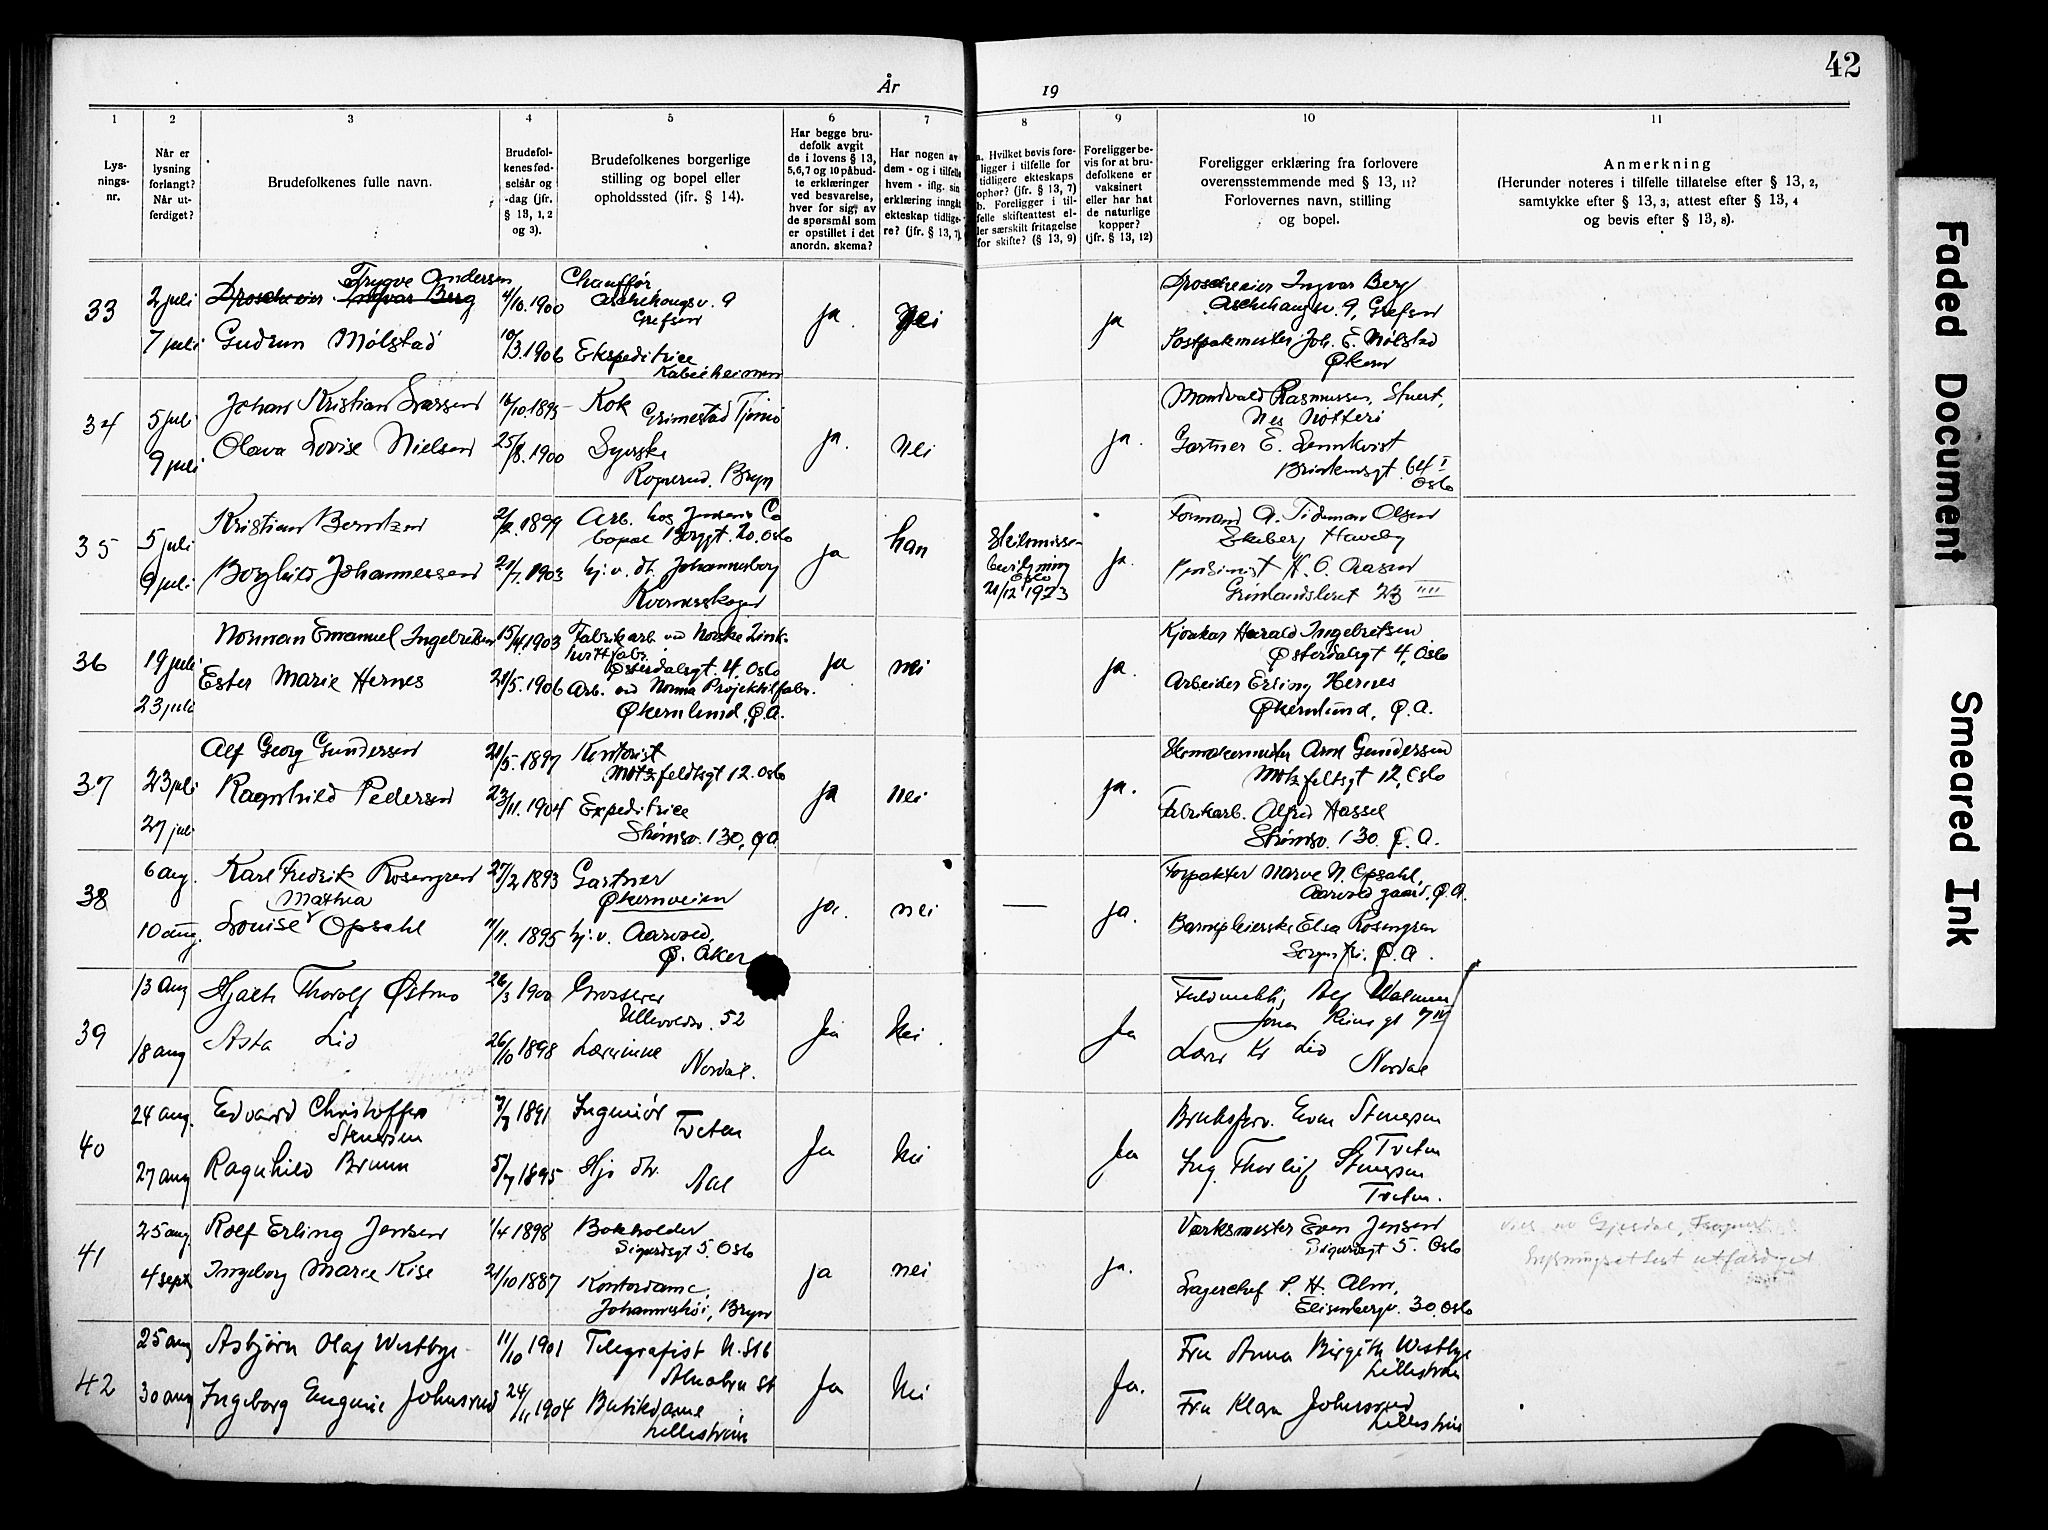 42
År 19
1
Lysningsnr.
2
Når er lysning forlangt? Når utferdiget?
3
Brudefolkenes fulle navn.
4
Brudefolkenes fødselsår og -dag (jfr. § 13, 1, 2 og 3).
5
Brudefolkenes borgerlige stilling og bopel eller opholdssted (jfr. § 14).
6
Har begge brudefolk avgit de i lovens § 13, 5, 6, 7 og 10 påbudte erklæringer ved besvarelse, hver for sig, av de spørsmål som er opstillet i det anordn. skema?
7
Har nogen av dem - og i tilfelle hvem - iflg. sin erklæring inngåt ekteskap tidligere? (jfr. § 13, 7).
8
a. Hvilket bevis foreligger i tilfelle for tidligere ekteskaps ophør? (jfr. § 13, 7)
b. Foreligger i tilfelle skifteattest eller særskilt fritagelse for skifte? (§ 13, 9)
9
Foreligger bevis for at brudefolkene er vaksinert eller har hat de naturlige kopper? (jfr. § 13, 12)
10
Foreligger erklæring fra forlovere overensstemmende med § 13, 11? Forlovernes navn, stilling og bopel.
11
Anmerkning
(Herunder noteres i tilfelle tillatelse efter § 13, 2, samtykke efter § 13, 3, attest efter § 13, 4 og bevis efter § 13, 8).
33
2 juli
7 juli
Trygve Andersen
Droscheeier Ingvar Berg
Gudrun Mølstad
4/10.1900
10/3.1906
Chauffør
Aschehougsv. 9
Grefsen
Ekspeditrice
Ja
Nei
ja
Droscheeier Ingvar Berg
Aschehougsv. 9, Grefsen
Postpakmester Joh. E. Mølstad
Økern
34
5 juli
9 juli
Johan Kristian Larsen
Olava Lovise Nielsen
16/10.1895
25/8.1900
Kok
Grimestad Tjømø
Syerske
Bryn
ja.
nei
ja.
Rasmussen, Stuert,
Nes Nøtterø
Gartner E. Lennkvist
64 I
Oslo
35
5 juli
9 juli
Kristian Berntzen
Borghild Johannessen
1899
21/7.1903
Arb. hos Jensen & Co
bopæl Borggt. 20. Oslo
hj. v. dt. Johannesborg
ja
han
Skilsmisse-
bevilgning
Oslo
21/12 1923
ja.
Formand A. Tideman Olsen
Ekeberg Haveby
H. O. Aasen
Grønlandsleret 23 IIII
36
19 juli
23 juli
Norman Emanuel Ingebretsen
Ester Marie Hernes
15/4.1903
21/5.1906
Fabrikarb. ved Norske Zink-
hvittfabr.
Østerdalsgt. 4, Oslo
Arb. ved Norma Projektilfabr.
Økernlund, Ø.A.
ja
nei
ja.
Kjørekar Harald Ingebretsen
Østerdalsgt 4, Oslo
Arbeider Erling Hernes
Økernlund, Ø.A.
37
23 juli
27 juli
Alf Georg Gundersen
Ragnhild Pedersen
21/5.1897
23/11.1904
Kontorist
Motzfeldtsgt 12. Oslo
Expeditrice
Strømsv. 130, ØA
ja
nei
ja.
Skomakermester Arne Gundersen
Motzfeltsgt 12, Oslo
Fabrikarb. Alfred Hassel
Strømsv. 130. Ø.A.
38
6 aug.
10 aug.
Karl Fredrik Rosengren
Mathea
Louise Opsahl
27/2 1893
11/11. 1895
Gartner
Økernveien
hj. v. Aarvold,
Ø. Aker
ja.
nei
—
ja.
Forpakter Narve N. Opsahl,
Aarvold gaard, Ø.A.
Barnepleierske Elsa Rosengren
Sorgenfri. Ø.A.
39
13 aug
18 aug
Hjalti Thorolf Østmo
Asta Lid
26/3 1900
26/10 1898
Grosserer
Ullevoldsv. 52
Lærerinne
Nordal.
Ja
Nei.
Ja
Fuldmektig Alf
Jonas Reins gt 7 IV
Lærer Kr Lid
Nordal
40
24 aug.
27 aug
Edvard Christoffer
Stenersen
Ragnhild Bruun
1891
1895
Ingeniør
Tveten
Hjv dtr.
Aal
Ja
Nei
Ja
Bruksforv. Even Stenersen
Tveten
Ing. Thorleif Stenersen
Tveten.
41
25 aug.
4 sept
Rolf Erling Jensen
Ingeborg Marie Kise
1/4 1898
21/10 1887
Bokholder
Sigurdsgt 5. Oslo
Kontordame,
Johanneshøi, Bryn
ja
nei
ja.
Verksmester Even Jensen
Sigurdsgt 5. Oslo
Lagerchef P. H. Alm,
Elisenbergv. 30, Oslo
lysningsattest utfærdiget
42
25 aug
30 aug
Asbjørn Olaf Westbye
Ingeborg Eugenie Johnsrud
11/10 1901
24/11 1904
Telegrafist N. Stb
Alnabru St
Butikdame
Lillestrøm
Ja
Nei
Ja.
Fru Anna Birgith Westbye
Lillestrøm
Fru Klara Johnsrud
Lillestrøm
Faded Document
Smeared Ink